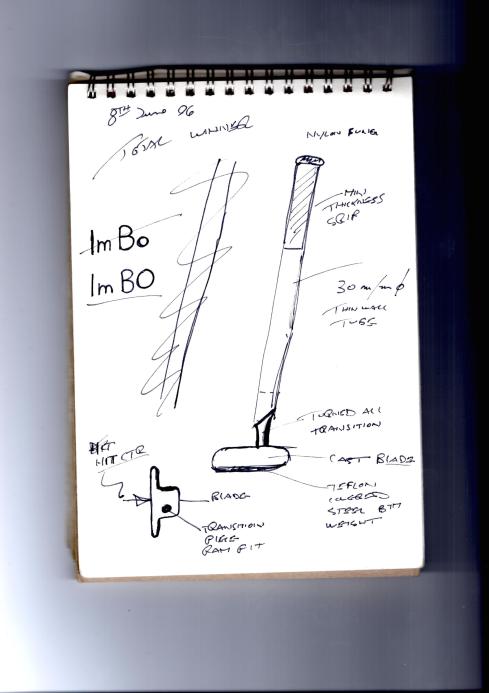 8TH June 96
TOTAL WINNER
NYLON
MIN
THICKNESS
GRIP
ImBo
ImBO
30 m/m ø
THIN WALL
TUBE
TURNED ALL
TRANSITION
HIT CTR
CAST BLADE
BLADE
TEFLON
COVERED
STEEL BTM
WEIGHT
TRANSITION
PIECE
RAM FIT